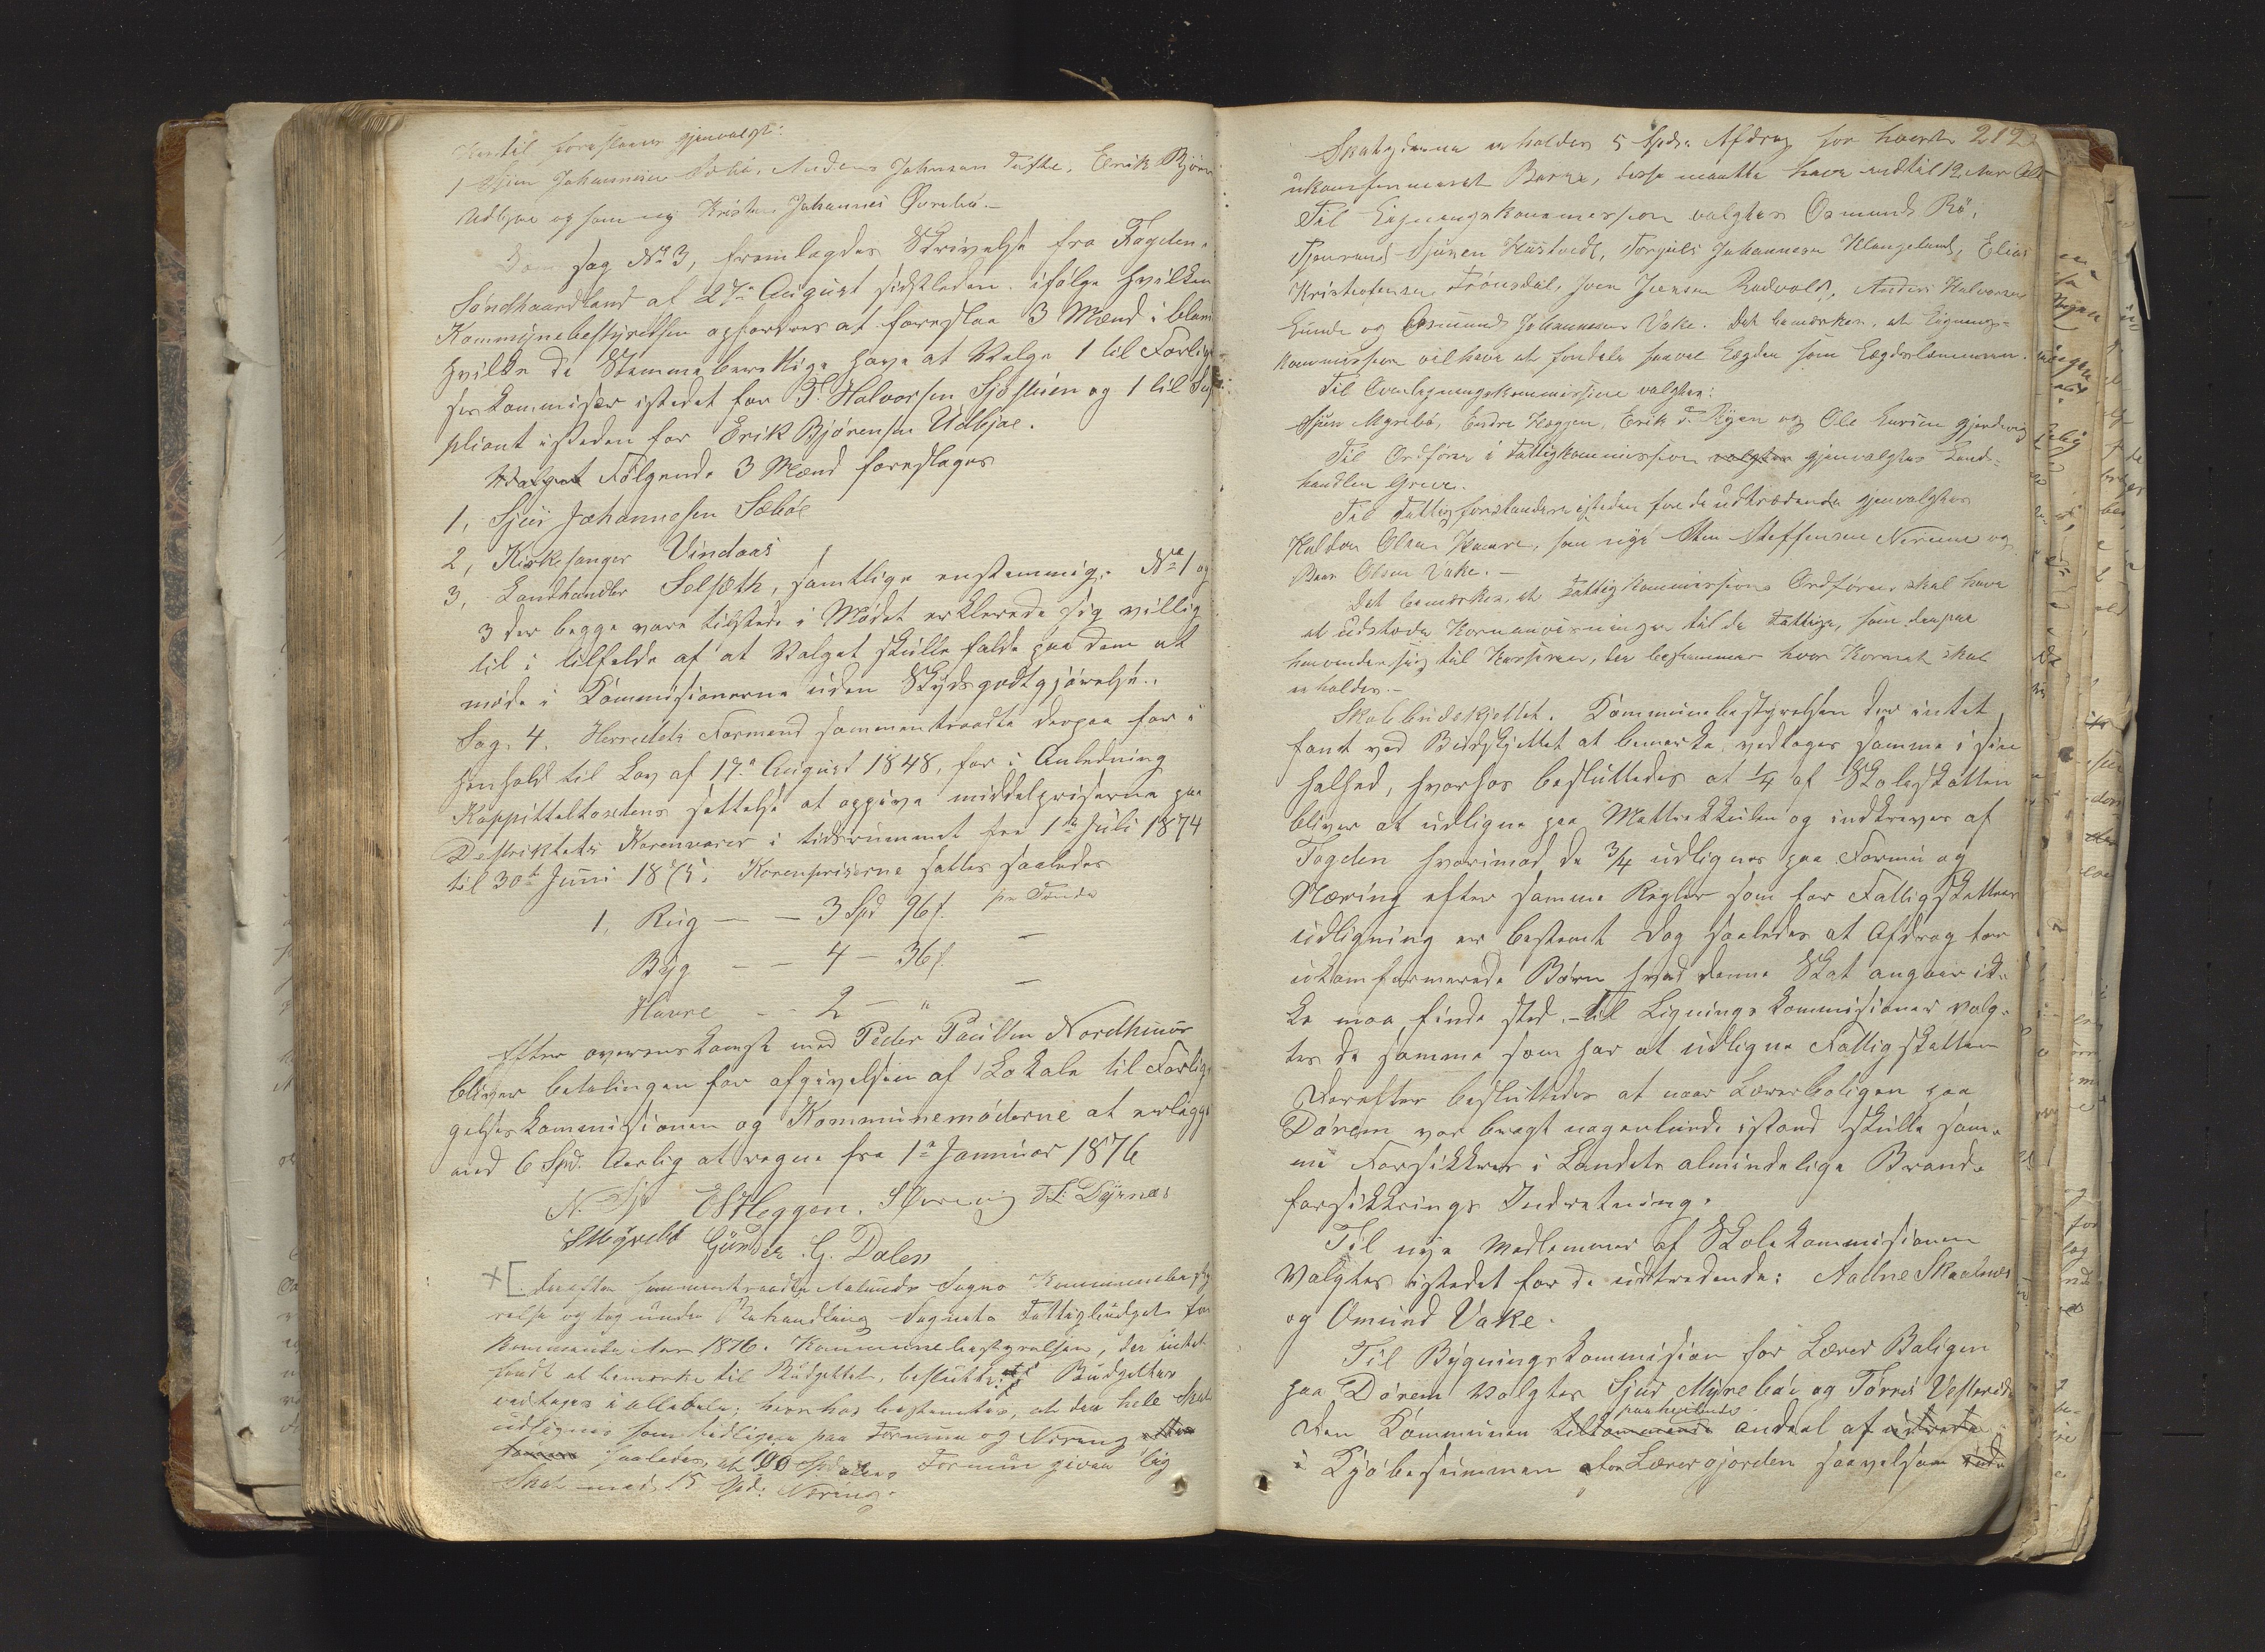 Hertil foreslaaes gjenvalgt:
1 Sjur Johannesen Sæbø, Anders Johnsen Tufte, Erik Bjørn
Udbjoe og som ny Kristen Johannes Øvrebø.
Som sag No 3, fremlagdes Skrivelse fra Fogden i
Søndhordland af 27de August sidstleden ifølge hvilken
Kommunebestyrelsen opfordres at foreslaa 3 Mænd i blan
hvilke de Stemmeberettige have at Velge 1 til Forlig
seskommisær istedet for T. Halvorsen Sjøstuen og 1 til Su
pliant isteden for Erik Bjørensen Udbjoe.
Valget Følgende 3 Mænd foreslages
1, Sjur Johannesen Sæbøe
2, Kirkesanger Vindaas
3, Landhandler Selseth, samtlige enstemmig. No 1 og
3 der begge vare tilstede i Mødet erklerede sig villig
til i tilfelde af at Valget skulle falde paa dem at
møde i Kommisionerne uden Skydsgodtgjørelse.
Sag. 4. Herredets Formend sammentraadte derpaa for i
henhold til Lov af 17de August 1848, for i Anledning
Kappitteltaxtens settelse at opgive middelpriserne paa
Destriktets Kornvarer i tidsrummet fra 1te Juli 1874
til 30te Juni 1875. Kornpriserne sattes saaledes
1, Rug — — 3 Spd 96 s. pr Tønde
Byg — — 4 — 36 s. —
Havre — - 2 — " —
Efter overenskomst med Peder Poulsen Nordhuus
bliver betalingen for afgivelsen af Lokale til Forlig
gelseskommissionen og Kommunemøderne at erlegge
med 6 Spd. Aarlig at regne fra 1te Januar 1876
N. Sjo E S Heggen. S Øvrevig T. L. Dyrnæs
S Myrebø Gunder G. Dalen
+[. Derefter sammentraadte Aalunds Sogns Kommunebesty
relse og tog under Behandling Sognets Fattigbudget for
kommende Aar 1876. Kommunebestyrelsen, der intet
fandt at bemerke til Budgettet, besluttede at Budgettet
vedtages i alle dele; hvorhos bestemtes, at den hele Skat
udlignes som tidligere paa Formue og Næring efter
samme saaledes, at 100 Spdalers Formue giver lig
Skat med 15 Spd. Næring.
212
Skatyderne erholder 5 Spd. Afdrag for hvert
ukonfirmeret Barn, disse maatte have indtil 12 Aar
Til Ligningskommission valgtes Osmund Rø,
Tjerand Sjursen Hustvedt, Torgils Johannesen Klungeland, Elias
Kristofersen Frønsdal, Iver Iversen Rødvold, Anders Halvorsen
Lunde og Osmund Johannesen Vake. Det bemærkes, at Lignings-
kommission vil have at fordele saavel Lægden som Lægdslemmerne.
Til Overligningskommissione valgtes:
Sjur Myrebø, Endre Heggen, Erik T. Ryen og Ole Larsen Gjerdevig
Til Ordfører i Fattigkommission valgtes gjenvalgtes Land-
handler Greve.
Til Fattigforstandere isteden for de udtrædende gjenvalgtes
Haldor Olsen Haare, som nye Sten Steffensen Nerime og
Baar Olsen Vake.
Det bemærkes, at Fattigkommissions Ordfører skal have
at udstede Kornanvisninger til de Fattige, som derpaa
henvender sig til Kassereren, der bestemmer hvor Kornet skal
erholdes.
Skolebudskjettet. Kommunebestyrelsen der intet
fant ved Budskjettet at bemerke vedtager samme i sin
helhed, hvorhos besluttedes at 1/4 af Skoleskatten
bliver at udligne paa Mattrikkulen og indkreves af
Fogden hvorimod de 3/4 udlignes paa Formu og
Næring efter samme Regler som for Fattigskattens
udligning er bestemt dog saaledes at Afdrag for
ukomfermerede Børn hvad denne Skat angaar ik-
ke maa finde sted. Til Ligningskommisionær valg-
tes de samme som har at udligne Fattigskatten
Derefter besluttedes at naar Lærerboligen paa
Dørem var bragt nogenlunde istand skulle sam-
me Forsikkres i Landets almindelige Brand-
forsikkrings Indretning.
Til nye Medlemmer af Skolekommisionen
Valgtes istedet for de udtredende: Aadne Skaalnes
og Omund Vake.
Til Bygningskommision for Lærer Boligen
paa Dørem valgtes Sjur Myrebøe og Tørres Vestereide
paahvilende
Den Kommunen tilkommende andeel af udrede
i Kjøbesummen for Lærergjorden saavelsom